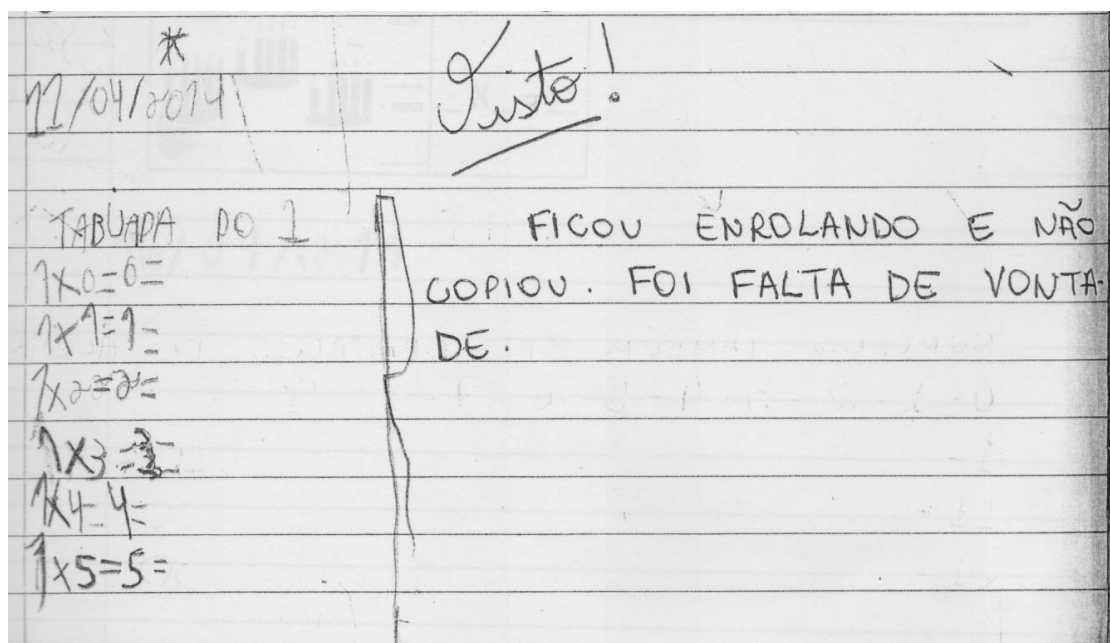 *
11/04/2014
Visto!
TABUADA DO 1
1x0=0=
1x1=1=
1x2=2=
1x3=3=
1x4=4=
1x5=5=
FICOU ENROLANDO E NÃO
COPIOU. FOI FALTA DE VONTA-
DE.